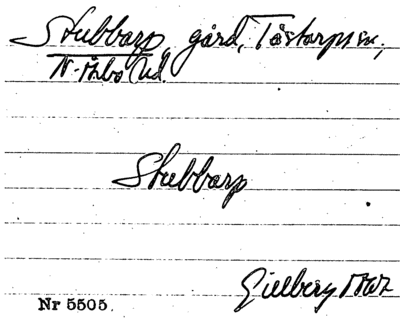 Stubbarp, gård, Tåstarps sn,
N. Åsbo hd.
Stubbarp
Gillberg 1767
Nr 5505.